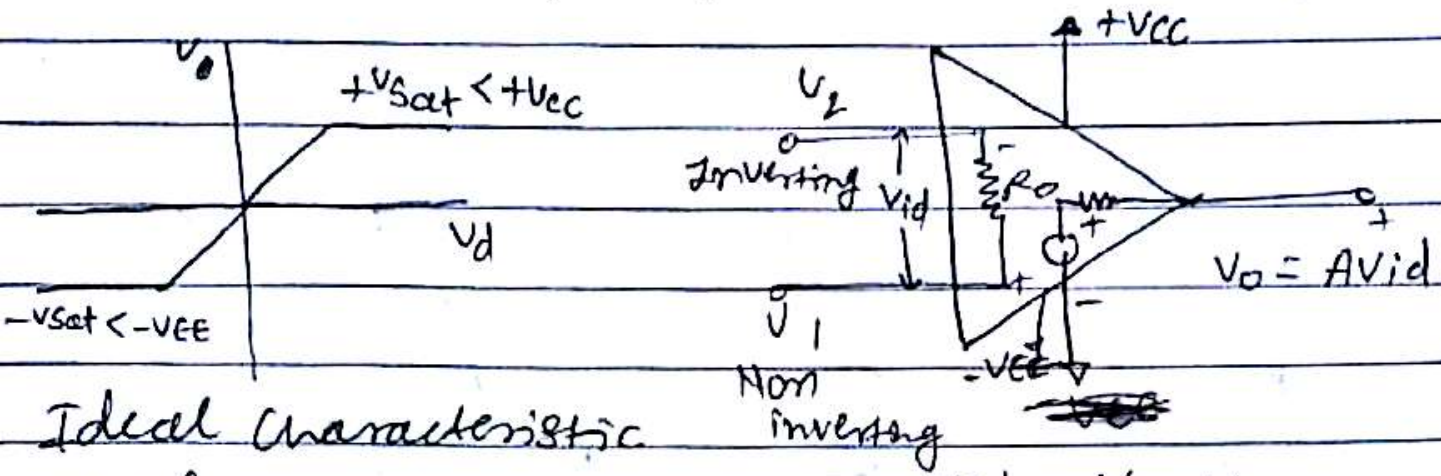 Vo
+Vsat < +Vcc
Vd
-Vsat < -VEE
Ideal Characteristic
+VCC
V2
Inverting
Vid
-
Ro
+
+
-
+
Vo = AVid
V1
Non
inverting
-VEE